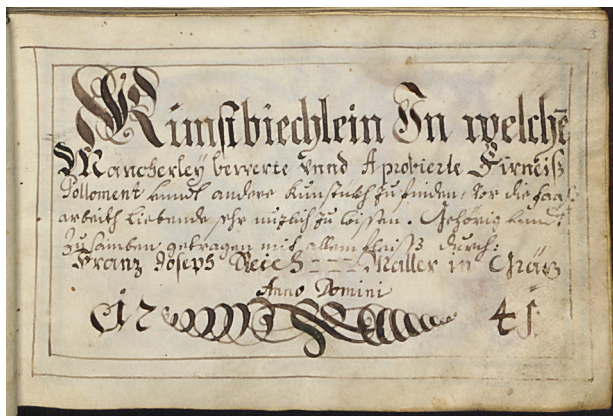 3
Kunstbiechlein In welchē
Mancherleÿ bewerte vnnd Aprobierte Firneiß
Polloment vnndt andere Kunststückh zu finden, vor die faaß
arbeith liebende sehr nuzlich zu wissen. Gehörig vnndt
zusamben getragen mit allem fleiß durch:
Franz Joseph Reich --- Maller in Gräz
Anno Domini
17 41